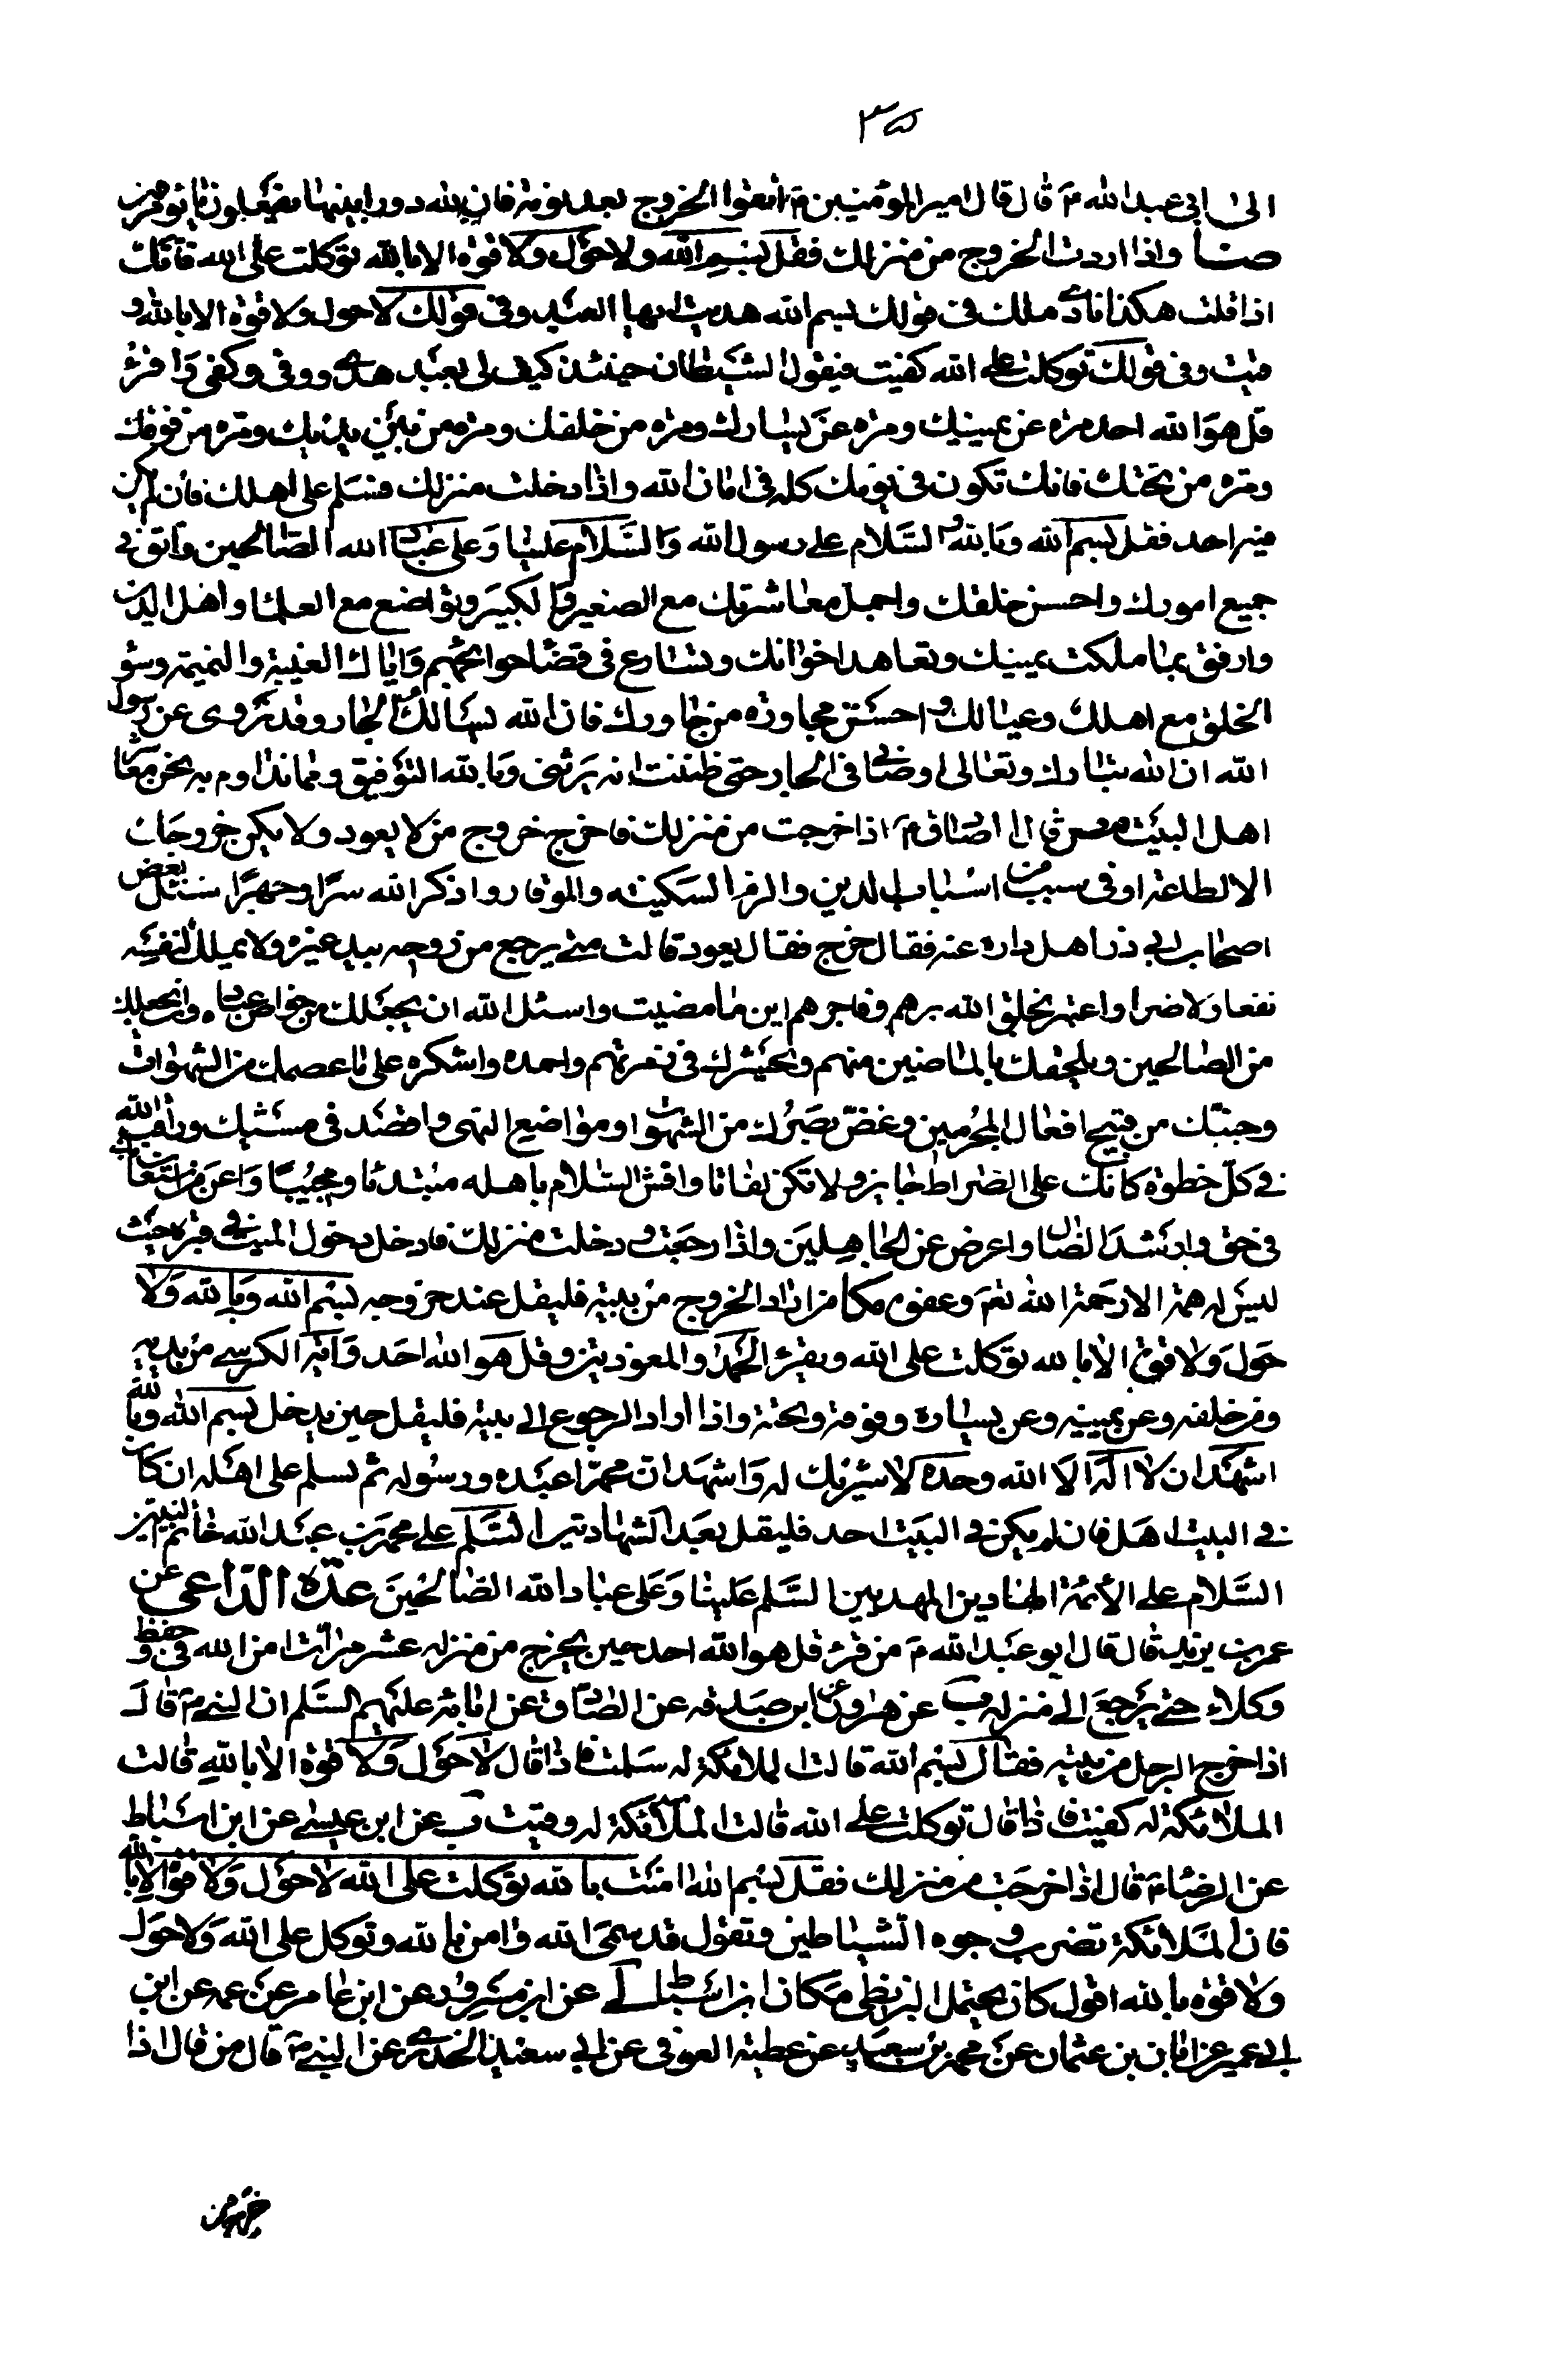 ٣٥
الى ابى عبد الله ع قال قال امير المؤمنين ع اتقوا الخروج بعد نومة فان لله دوارا بينها يفعلون ما يؤمرون
ضا واذا اردت الخروج من منزلك فقل بسم الله ولا حول ولا قوة الا بالله توكلت على الله فانك
اذا قلت هكذا نادى ملك فى قولك بسم الله هديت ايها العبد وفى قولك لا حول ولا قوة الا بالله و
قيت وفى قولك توكلت على الله كفيت فيقول الشيطان حينئذ كيف لى بعبد هدى ووقى وكفى واقرء
قل هو الله احد مرة عن يمينك ومرة عن يسارك ومرة من خلفك ومرة من بين يديك ومرة من فوقك
ومرة من تحتك فانك تكون فى يومك كله فى امان الله واذا دخلت منزلك فسلم على اهلك فان لم يكن
فيه احد فقل بسم الله وبالله والسلام على رسول الله والسلام علينا وعلى عباد الله الصالحين واتق فى
جميع امورك واحسن خلقك واجمل معاشرتك مع الصغير والكبير وتواضع مع العلماء واهل الدين
وارفق بما ملكت يمينك وتعاهد اخوانك وتسارع فى قضاء حوائجهم واياك الغيبة والنميمة وسوء
الخلق مع اهلك وعيالك واحسن مجاورة من جاورك فان الله يسالك عن الجار وقد نروى عن رسول
الله ان الله تبارك وتعالى اوصانى فى الجار حتى ظننت انه يرثنى وبالله التوفيق ومما نداوم به نحن معاشر
اهل البيت مص قال الصادق ع اذا خرجت من منزلك فاخرج خروج من لا يعود ولا يكن خروجك
الا لطاعة او فى سبب من اسباب الدين والزم السكينة والوقار واذكر الله سرا وجهرا سئل بعض
اصحاب ابى ذر اهل داره عنه فقال خرج فقال يعود قالت متى يرجع من روحه بيد غيره ولا يملك لنفسه
نفعا ولا ضرا واعتبر بخلق الله برهم وفاجرهم اين ما مضيت واسئل الله ان يجعلك من خواص عباده وان يجعلك
من الصالحين ويلحقك بالماضين منهم ويحشرك فى زمرتهم واحمده واشكره على ما عصمك من الشهوات
وجنبك من قبيح افعال المجرمين وغض بصرك من الشهوات ومواضع النهى واقصد فى مشيك وراقب الله
فى كل خطوة كانك على الصراط جايز ولا تكن لفاتا وافش السلام باهله مبتدئا ومجيبا واعن من استعان بك
فى حق وارشد الضال واعرض عن الجاهلين واذا رجعت ودخلت منزلك فادخل دخول الميت فى قبره حيث
ليس له همة الا رحمة الله تعم وعفوه مكا من اراد الخروج من بيته فليقل عند خروجه بسم الله وبالله ولا
حول ولا قوة الا بالله توكلت على الله ويقرء الحمد والمعوذتين وقل هو الله احد وآية الكرسى من بين يديه
ومن خلفه وعن يمينه وعن يساره وفوقه وتحته واذا اراد الرجوع الى بيته فليقل حين يدخل بسم الله وبالله
اشهد ان لا اله الا الله وحده لا شريك له واشهد ان محمدا عبده ورسوله ثم يسلم على اهله ان كان
فى البيت اهل فان لم يكن فى البيت احد فليقل بعد الشهادتين السلم على محمد بن عبد الله خاتم النبيين
السلام على الأئمة الهادين المهديين السلم علينا وعلى عباد الله الصالحين عدة الداعى عن
عمر بن يزيد قال قال ابو عبد الله ع من قرء قل هو الله احد حين يخرج من منزله عشر مرات امن الله فى حفظه و
وكلاء حتى يرجع الى منزله ب عن هرون عن ابن صدقه عن الصادق عن ابائه عليهم السلم ان النبى ص قال
اذا خرج الرجل من بيته فقال بسم الله قالت الملائكة له سلمت فاذا قال لا حول ولا قوة الا بالله قالت
الملائكة له كفيت فاذا قال توكلت على الله قالت الملائكة له وقيت ب عن ابن عيسى عن ابن اسباط
عن الرضا ع قال اذا خرجت من منزلك فقل بسم الله امنت بالله توكلت على الله لا حول ولا قوة الا بالله
فان الملائكة تضرب وجوه الشياطين وتقول قد سمى الله وامن بالله وتوكل على الله ولا حول
ولا قوة بالله اقول كان يحتمل البزنطى مكان ابن اسباط لى عن ابن مسرور عن ابن عامر عن عمه عن ابن
ابى عمير عن ابان بن عثمان عن محمد بن سعيد عن عطية العوفى عن ابى سعيد الخدرى عن النبى ص قال من قال اذا
خرج من